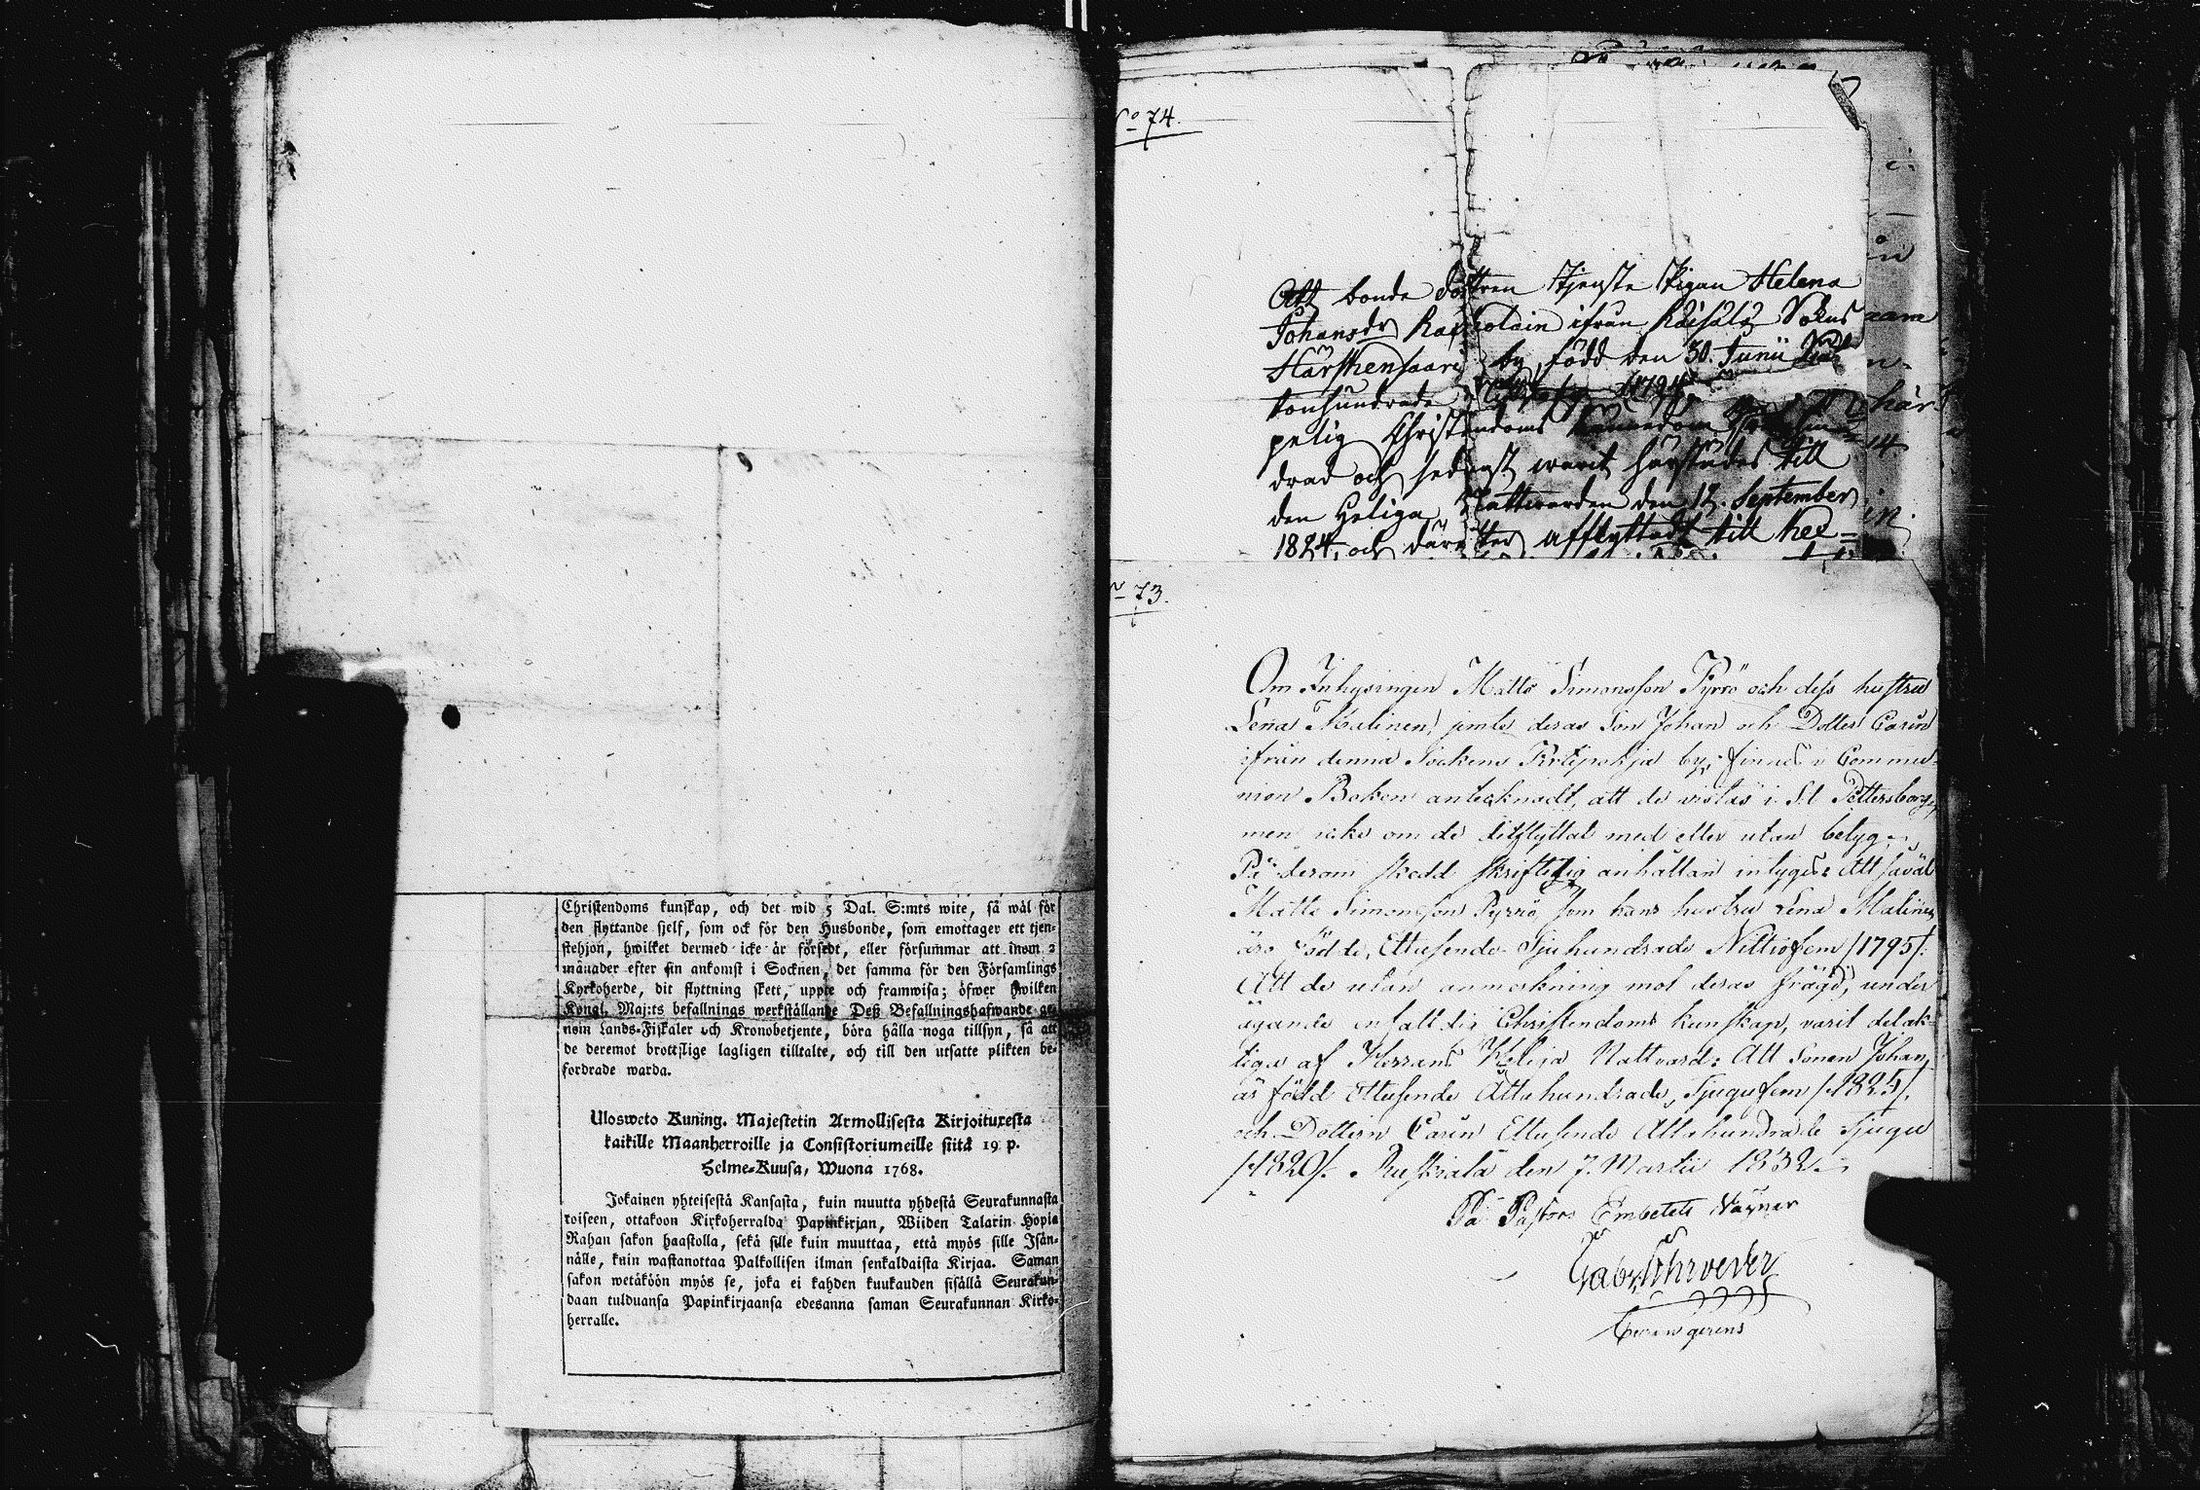 Christendoms kunskap, och det wid 5 Dal. S:mts wite, så wäl för
den flyttande sjelf, som ock för den Husbonde, som emottager ett tjen-
stehjon, hwilket dermed icke är försedt, eller försummar att inom 2
månader efter sin ankomst i Socknen, det samma för den Församlings
Kyrkoherde, dit flyttning skett, uppte och framwisa; öfwer hwilken
Kongl. Maj:ts befallnings werkställande Deß Befallningshafwande ge-
nom Lands-Fiskaler och Kronobetjente, böra hålla noga tillsyn, så att
de deremot brottslige lagligen tilltalte, och till den utsatte plikten be-
fordrade warda.
Ulosweto Kuning. Majestetin Armollisesta Kirjoituxesta
kaikille Maanherroille ja Consistoriumeille siitä 19 p.
Helme-Kuusa, Wuona 1768.
Jokainen yhteisestä Kansasta, kuin muutta yhdestä Seurakunnasta
toiseen, ottakoon Kirkoherralda Papinkirjan, Wiiden Talarin Hopia
Rahan sakon haastolla, sekä sille kuin muuttaa, että myös sille Isän-
nälle, kuin wastanottaa Palkollisen ilman senkaldaista Kirjaa. Saman
sakon wetäköön myös se, joka ei kahden kuukauden sisällä Seurakun-
daan tulduansa Papinkirjaansa edesanna saman Seurakunnan Kirko-
herralle.
No 74.
Att bonde dottren tjenste Pigan Helena
Johansdr ifrån Räisälä Sokns
Härskensaari by, född den 30. Junii
tonhundrade
pelig Christendoms kunnedom
drad och sednast warit härstädes till
den Heliga Nattwarden den 12. September
1824, och därefter afflyttadt till Kex=
No 73.
Om Inhysingen Matts Simonsson Pyrrö och dess hustru
Lena Malinen, jemte deras Son Johan och Dotter Carin
ifrån denna Sockens by, finnes i Commu-
nion Boken antecknadt, att de vistas i St Pettersborg,
men icke om de ditflyttat med eller utan betyg.
På derom skedd skriftelig anhållan intygas: Att såväl
Matts Simonsson Pyrrö, som hans hustru Lena Malinen
äro födde, Ettusende Sjuhundrade Nittiofem /1795/:
Att de utan anmerkning mot deras frägd, under
ägande enfaldig Christendoms kunskap, varit delak-
tiga af Herrans Heliga Nattvard: Att Sonen Johan
är född Ettusende Åttahundrade, Tjugufem /1825/.
och Dottern Carin Ettusende Åttahundrade Tjugu
/1820/. Ruskiala den 7. Martii 1832.
På Pastors Embetets Vägnar
Gabr. Schroeder
Curam gerens